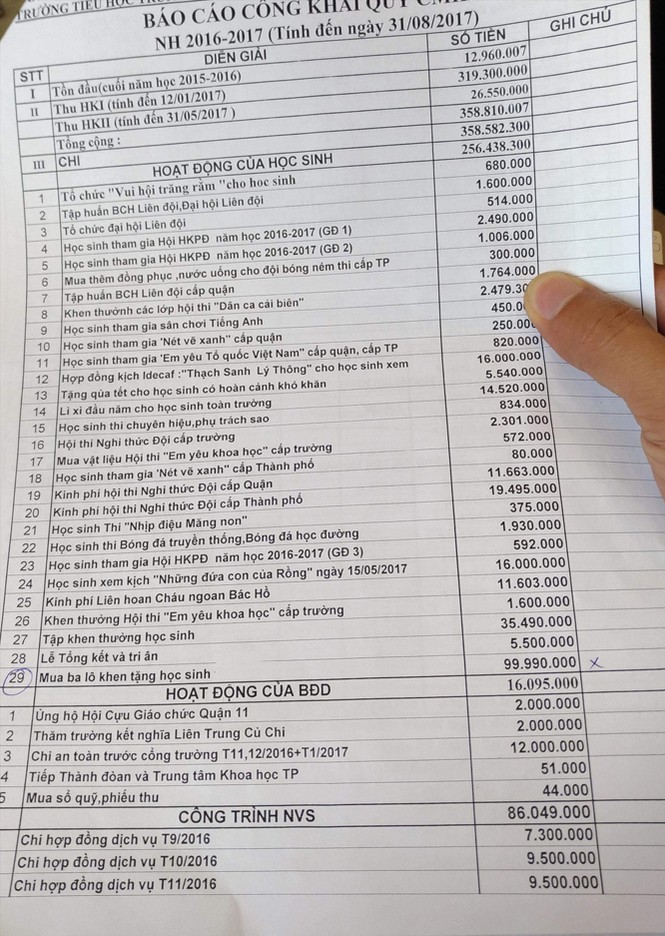 TRƯỜNG TIỂU HỌC
BÁO CÁO CÔNG KHAI QUỸ
NH 2016-2017 (Tính đến ngày 31/08/2017)
STT DIỄN GIẢI SỐ TIỀN GHI CHÚ
I Tồn đầu(cuối năm học 2015-2016) 12.960.007
II Thu HKI (tính đến 12/01/2017) 319.300.000
Thu HKII (tính đến 31/05/2017 ) 26.550.000
Tổng cộng : 358.810.007
III CHI 358.582.300
HOẠT ĐỘNG CỦA HỌC SINH 256.438.300
1 Tổ chức "Vui hội trăng rằm "cho hoc sinh 680.000
2 Tập huấn BCH Liên đội,Đại hội Liên đội 1.600.000
3 Tổ chức đại hội Liên đội 514.000
4 Học sinh tham gia Hội HKPĐ năm học 2016-2017 (GĐ 1) 2.490.000
5 Học sinh tham gia Hội HKPĐ năm học 2016-2017 (GĐ 2) 1.006.000
6 Mua thêm đồng phục ,nước uống cho đội bóng ném thi cấp TP 300.000
7 Tập huấn BCH Liên đội cấp quận 1.764.000
8 Khen thưởnh các lớp hội thi "Dân ca cải biên" 2.479.30
9 Học sinh tham gia sân chơi Tiếng Anh 450.00
10 Học sinh tham gia 'Nét vẽ xanh" cấp quận 250.000
11 Học sinh tham gia 'Em yêu Tổ quốc Việt Nam" cấp quận, cấp TP 820.000
12 Hợp đồng kịch Idecaf :"Thạch Sanh Lý Thông" cho học sinh xem 16.000.000
13 Tặng qùa tết cho học sinh có hoàn cảnh khó khăn 5.540.000
14 Lì xì đầu năm cho học sinh toàn trường 14.520.000
15 Học sinh thi chuyên hiệu,phụ trách sao 834.000
16 Hội thi Nghi thức Đội cấp trường 2.301.000
17 Mua vật liệu Hội thi "Em yêu khoa học" cấp trường 572.000
18 Học sinh tham gia 'Nét vẽ xanh" cấp Thành phố 80.000
19 Kinh phí hội thi Nghi thức Đội cấp Quận 11.663.000
20 Kinh phí hội thi Nghi thức Đội cấp Thành phố 19.495.000
21 Học sinh Thi "Nhịp điệu Măng non" 375.000
22 Học sinh thi Bóng đá truyền thống,Bóng đá học đường 1.930.000
23 Học sinh tham gia Hội HKPĐ năm học 2016-2017 (GĐ 3) 592.000
24 Học sinh xem kịch "Những đứa con của Rồng" ngày 15/05/2017 16.000.000
25 Kinh phí Liên hoan Cháu ngoan Bác Hồ 11.603.000
26 Khen thưởng Hội thi "Em yêu khoa học" cấp trường 1.600.000
27 Tập khen thưởng học sinh 35.490.000
28 Lễ Tổng kết và tri ân 5.500.000
29 Mua ba lô khen tặng học sinh 99.990.000 x
HOẠT ĐỘNG CỦA BĐD 16.095.000
1 Ủng hộ Hội Cựu Giáo chức Quận 11 2.000.000
2 Thăm trường kết nghĩa Liên Trung Củ Chi 2.000.000
3 Chi an toàn trước cổng trường T11,12/2016+T1/2017 12.000.000
4 Tiếp Thành đòan và Trung tâm Khoa học TP 51.000
5 Mua sổ quỹ,phiếu thu 44.000
CÔNG TRÌNH NVS 86.049.000
Chi hợp đồng dịch vụ T9/2016 7.300.000
Chi hợp đồng dịch vụ T10/2016 9.500.000
Chi hợp đồng dịch vụ T11/2016 9.500.000